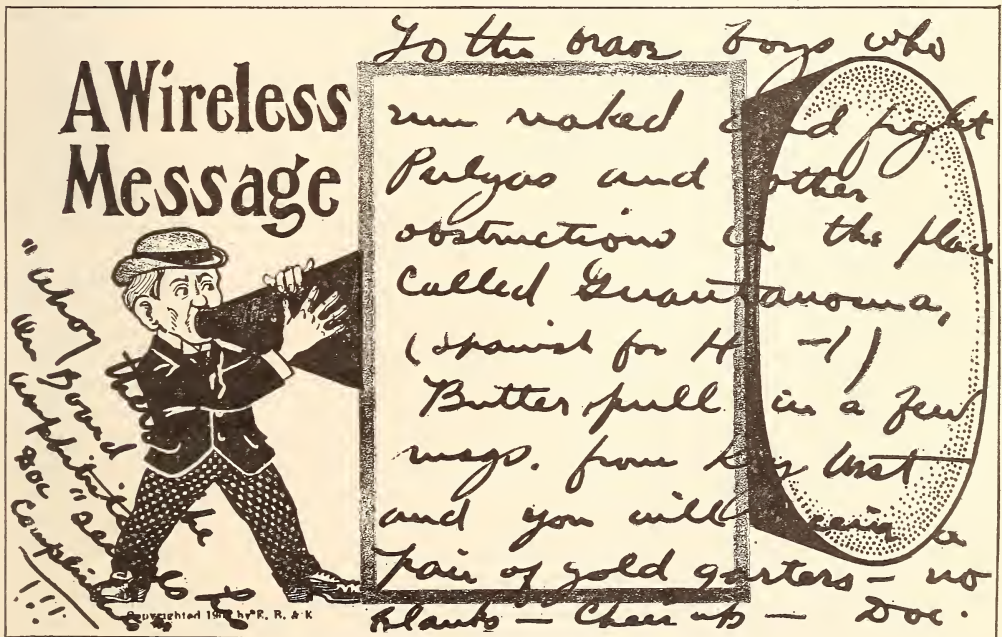 A Wireless
Message
To the brave boys who
run naked and fight
Pulgas and other
obstructions in the place
called Guantanoma,
(Spanish for H— —l)
Butter pull in a few
msgs. from Key West
and you will a
pair of gold garters — no
Blanks — Cheer up — Doc.
"Ahoy there
Doc
Copyrighted by R. R. & K